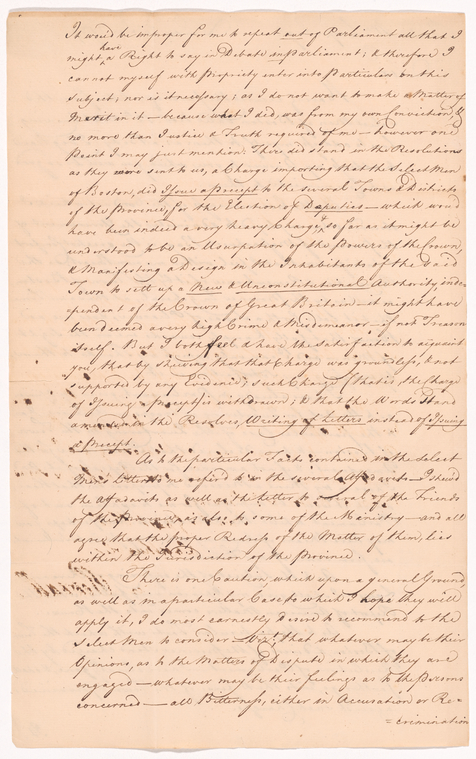 It would be improper for me to repeat out of Parliament all that I
have
might ^ a Right to say in Debate in Parliament; & therefore I
cannot myself with Propriety enter into Particulars on this
Subject; nor is it necessary; as I do not want to make a Matter of
Merit in it — because what I did, was from my own Conviction, &
no more than Justice & Truth required of me — however one
Point I may just mention. There did stand in the Resolutions
as they were sent to us, a Charge importing that the Select Men
of Boston, did Issue a Precept to the several Towns & Districts
of the Province, for the Election of Deputies — which would
have been indeed a very heavy Charge, so far as it might be
understood to be an Usurpation of the Powers of the Crown
& Manifesting a Design in the Inhabitants of the said
Town to sett up a New & Unconstitutional Authority inde-
pendent of the Crown of Great Britain — it might have
been deemed a very high Crime & Misdemeanor — if not Treason
itself. But I both feel & have the Satisfaction to acquaint
you, that by shewing that that Charge was groundless, & not
supported by any Evidence, such Charge (that is, the Charge
of Issuing a Precept) is withdrawn; & that the Words stand
amended in the Resolves, Writing of Letters instead of Issuing
a Precept.
As to the particular Facts contained in the Select
Men's Letter to me referd to in the several Affidavits — I shewd
the Affadavits as well as the Letter to several of the Friends
of the Province, as also to some of the Ministry — and all
agree that the proper Redress of the Matter of them, lies
within the Jurisdiction of the Province.
There is one Caution, which upon a general Ground
as well as in a particular Case to which I hope they will
apply it, I do most earnestly desire to recommend to the
Select Men to consider — Vizt. that whatever may be their
Opinions, as to the Matters of Dispute in which they are
engaged — whatever may be their feelings as to the persons
concerned — all Bitterness, either in Accusation or Re=
=crimination